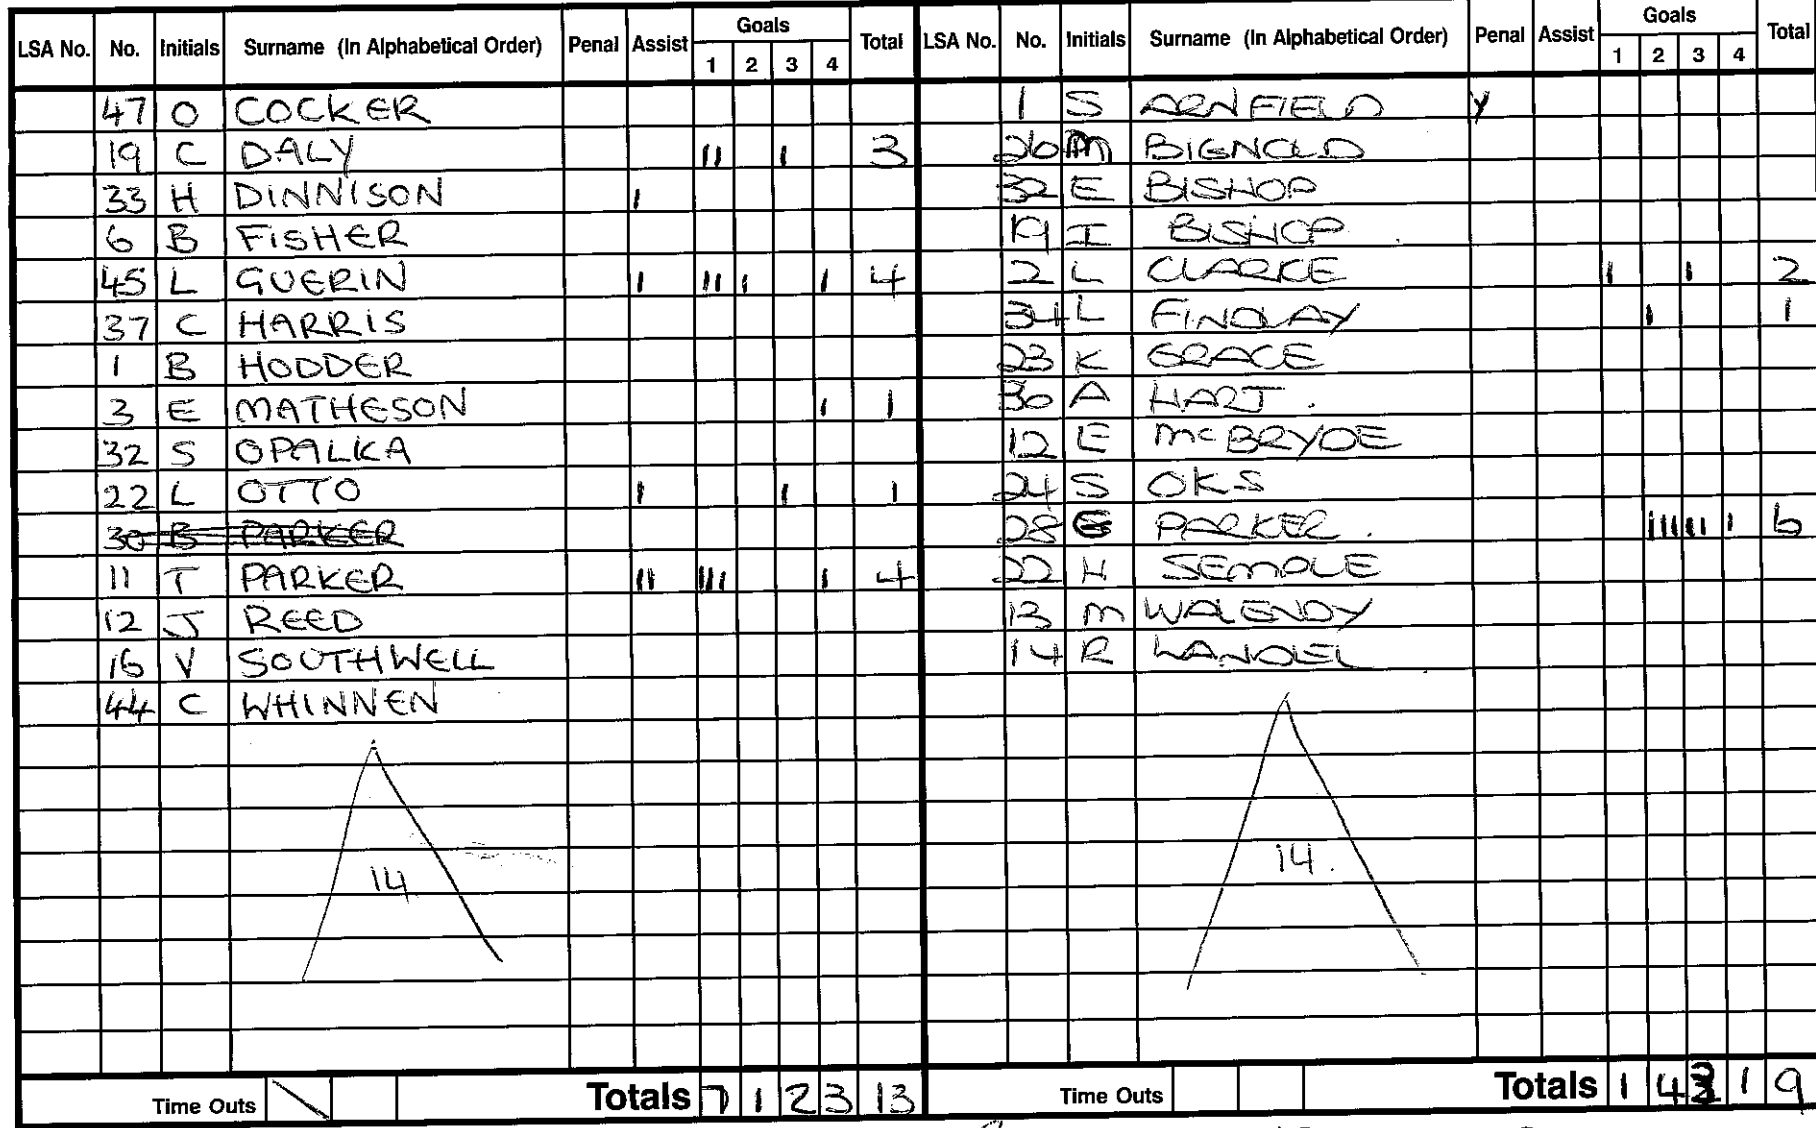 LSA No. No. Initials Surname (In Alphabetical Order) Penal Assist Goals 1 2 3 4 Total
47 O COCKER
19 C DALY II I 3
33 H DINNISON I
6 B FISHER
45 L GUERIN I II I I 4
37 C HARRIS
1 B HODDER
3 E MATHESON I I
32 S OPALKA
22 L OTTO I I I
30 B PARKER
11 T PARKER II III I 4
12 J REED
16 V SOUTHWELL
44 C WHINNEN
14
Time Outs Totals 7 1 2 3 13
LSA No. No. Initials Surname (In Alphabetical Order) Penal Assist Goals 1 2 3 4 Total
1 S ARNFIELD Y
26 M BIGNOLD
32 E BISHOP
19 I BISHOP
2 L CLARKE I I 2
34 L FINDLAY I 1
23 K GRACE
30 A HART.
12 E McBRYDE
24 S OKS
28 PARKER. III II I 6
22 H SEMPLE
13 M WALENDY
14 R WANDEL
14.
Time Outs Totals 1 4 3 1 9